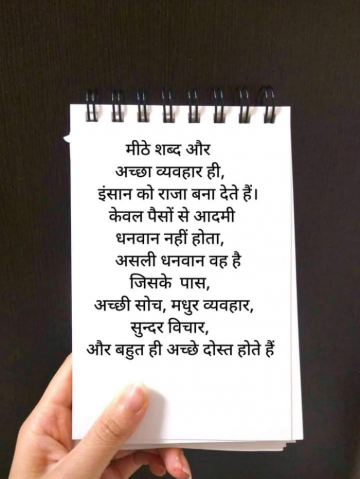 मीठे शब्द और
अच्छा व्यवहार ही,
इंसान को राजा बना देते हैं।
केवल पैसों से आदमी
धनवान नहीं होता,
असली धनवान वह है
जिसके पास,
अच्छी सोच, मधुर व्यवहार,
सुन्दर विचार,
और बहुत ही अच्छे दोस्त होते हैं